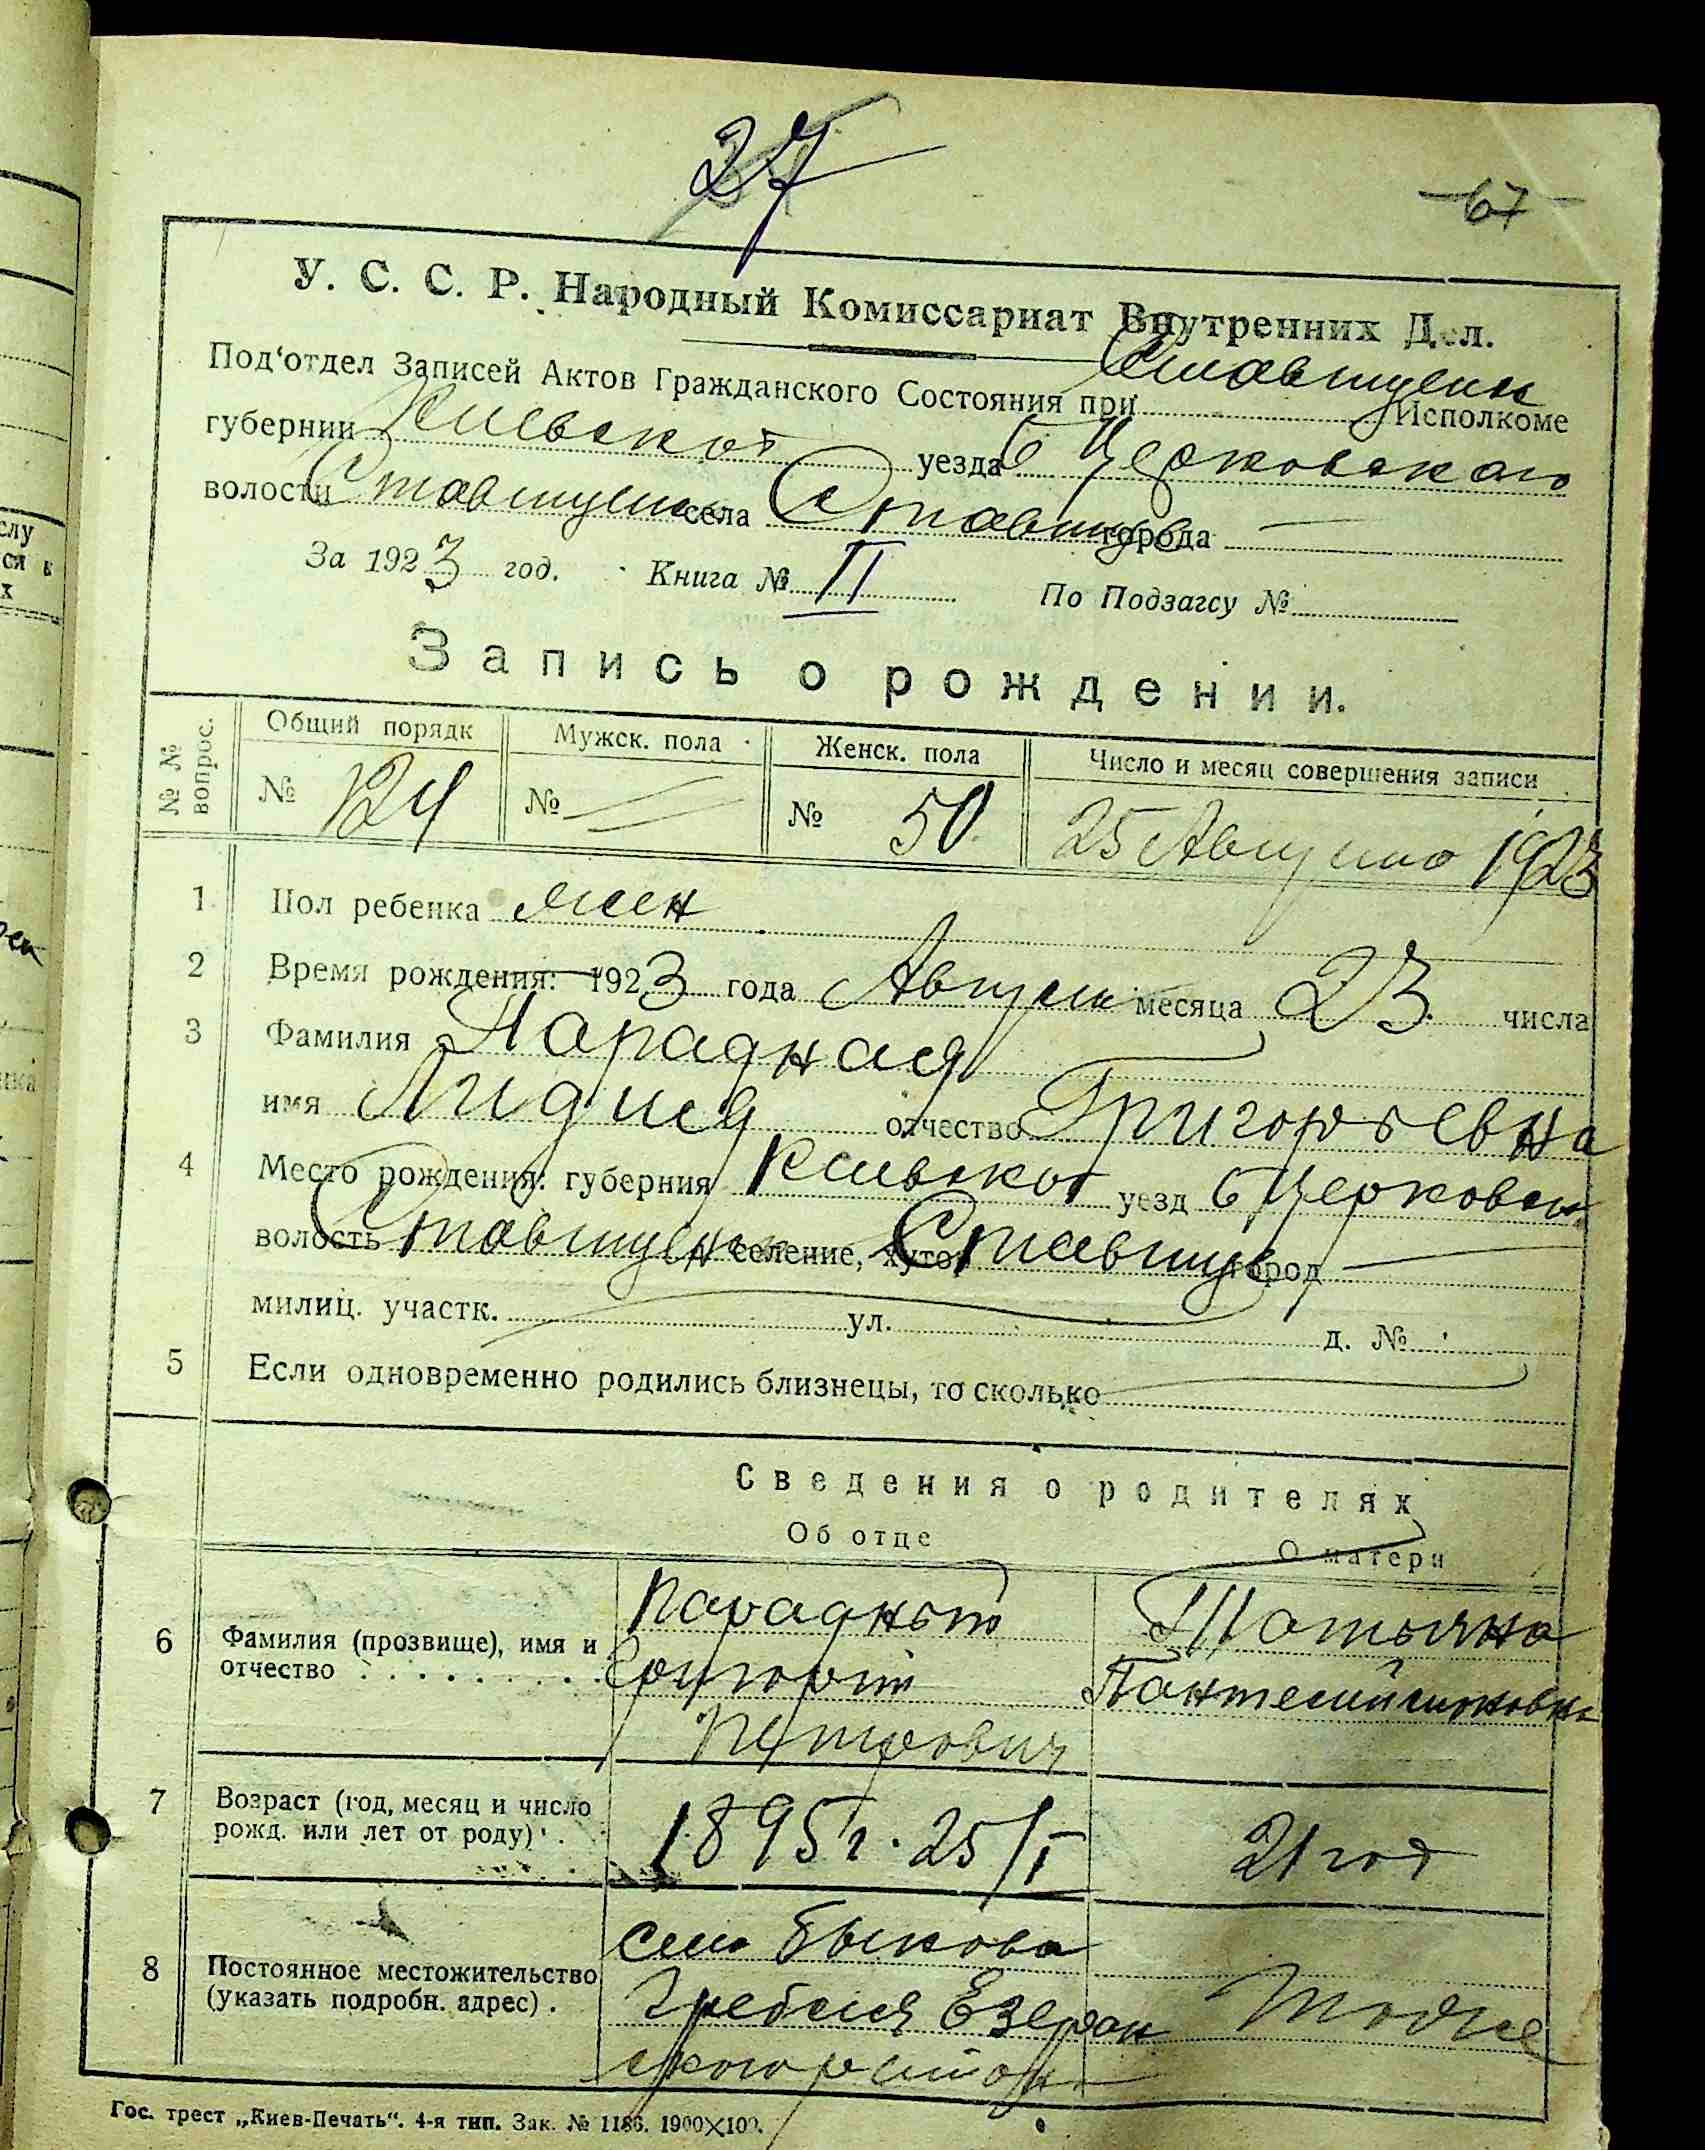 27
67
У. С. С. Р. Народный Комиссариат Внутренних Дел.
Под'отдел Записей Актов Гражданского Состояния при Ставищен Исполкоме
губернии Киевской уезда Б Церковского
волости Ставищен села Ставище города —
За 1923 год. Книга № II По Подзагсу №
Запись о рождении.
№ № вопрос. Общий порядк Мужск. пола Женск. пола Число и месяц совершения записи
№ 124 № — № 50 25 Августа 1923
1 Пол ребенка жен
2 Время рождения: 1923 года Август месяца 23 числа
3 Фамилия Парадная
имя Лидия отчество Григорьевна
4 Место рождения: губерния Киевской уезд б Церковск
волость Ставищен селение, хутор Ставище город —
милиц. участк. ул. д. №
5 Если одновременно родились близнецы, то сколько
Сведения о родителях
Об отце О матери
6 Фамилия (прозвище), имя и отчество Парадный Григорій Петрович Татьяна
7 Возраст (год, месяц и число рожд. или лет от роду) 1895 г. 25/I 21 год
8 Постоянное местожительство (указать подробн. адрес). село Быкова Гребля Езерян ского район Тоже
Гос. трест „Киев-Печать“. 4-я тип. Зак. № 1186. 1900×100.